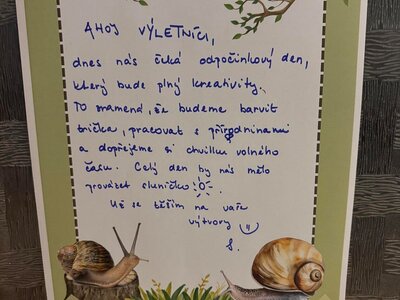 AHOJ VÝLETNÍCI,
dnes nás čeká odpočinkový den,
který bude plný kreativity.
TO znamená, že budeme barvit
trička, pracovat s přírodninami
a dopřejeme si chvilku volného
času. Celý den by nás mělo
provázet sluníčko
Už se těším na vaše
výtvory
S.